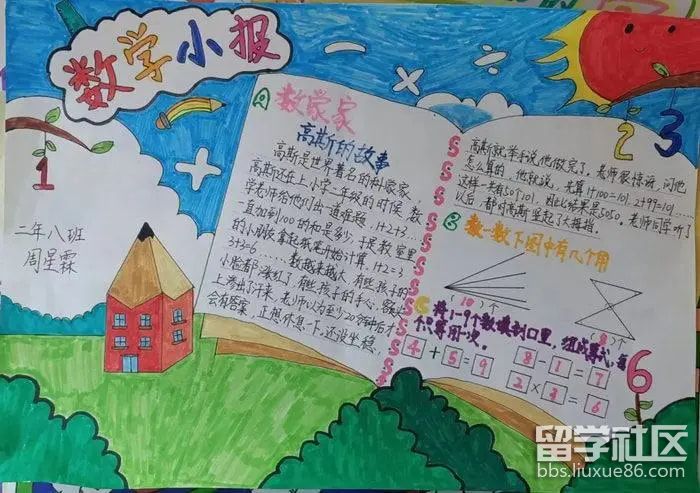 数学小报
1
二年八班
周星霖
A 数家家
高斯的故事
高斯是世界著名的科家家，
高斯还在上小学二年级的时候，数
学老师给他们出一道难题，1+2+3…
一直加到100的和是多少，于是教室里
的小朋友拿起纸笔开始计算，1+2=3
3+3=6……数越来越大，有些孩子的
小脸都涨红了，有些孩子的手心、额头
上渗出了汗来，老师以为至少20分钟后才
会有答案，正想休息一下，还没坐稳，
SSSSSSSSS
2
3
高斯就举手说，他做完了，老师很惊讶，问他
怎么算的，他就说，先算1+100=101，2+99=101……
这样一共有50个101，因此结果是5050。老师同学听了
以后，都对高斯竖起了大拇指。
B 数一数下图中有几个角
(10)个
(8)个
C 将1-9个数填到口里，组成算式，每
个只等用一次。
4+5=9
8-1=7
2×3=6
6
留学社区
bbs.liuxue86.com